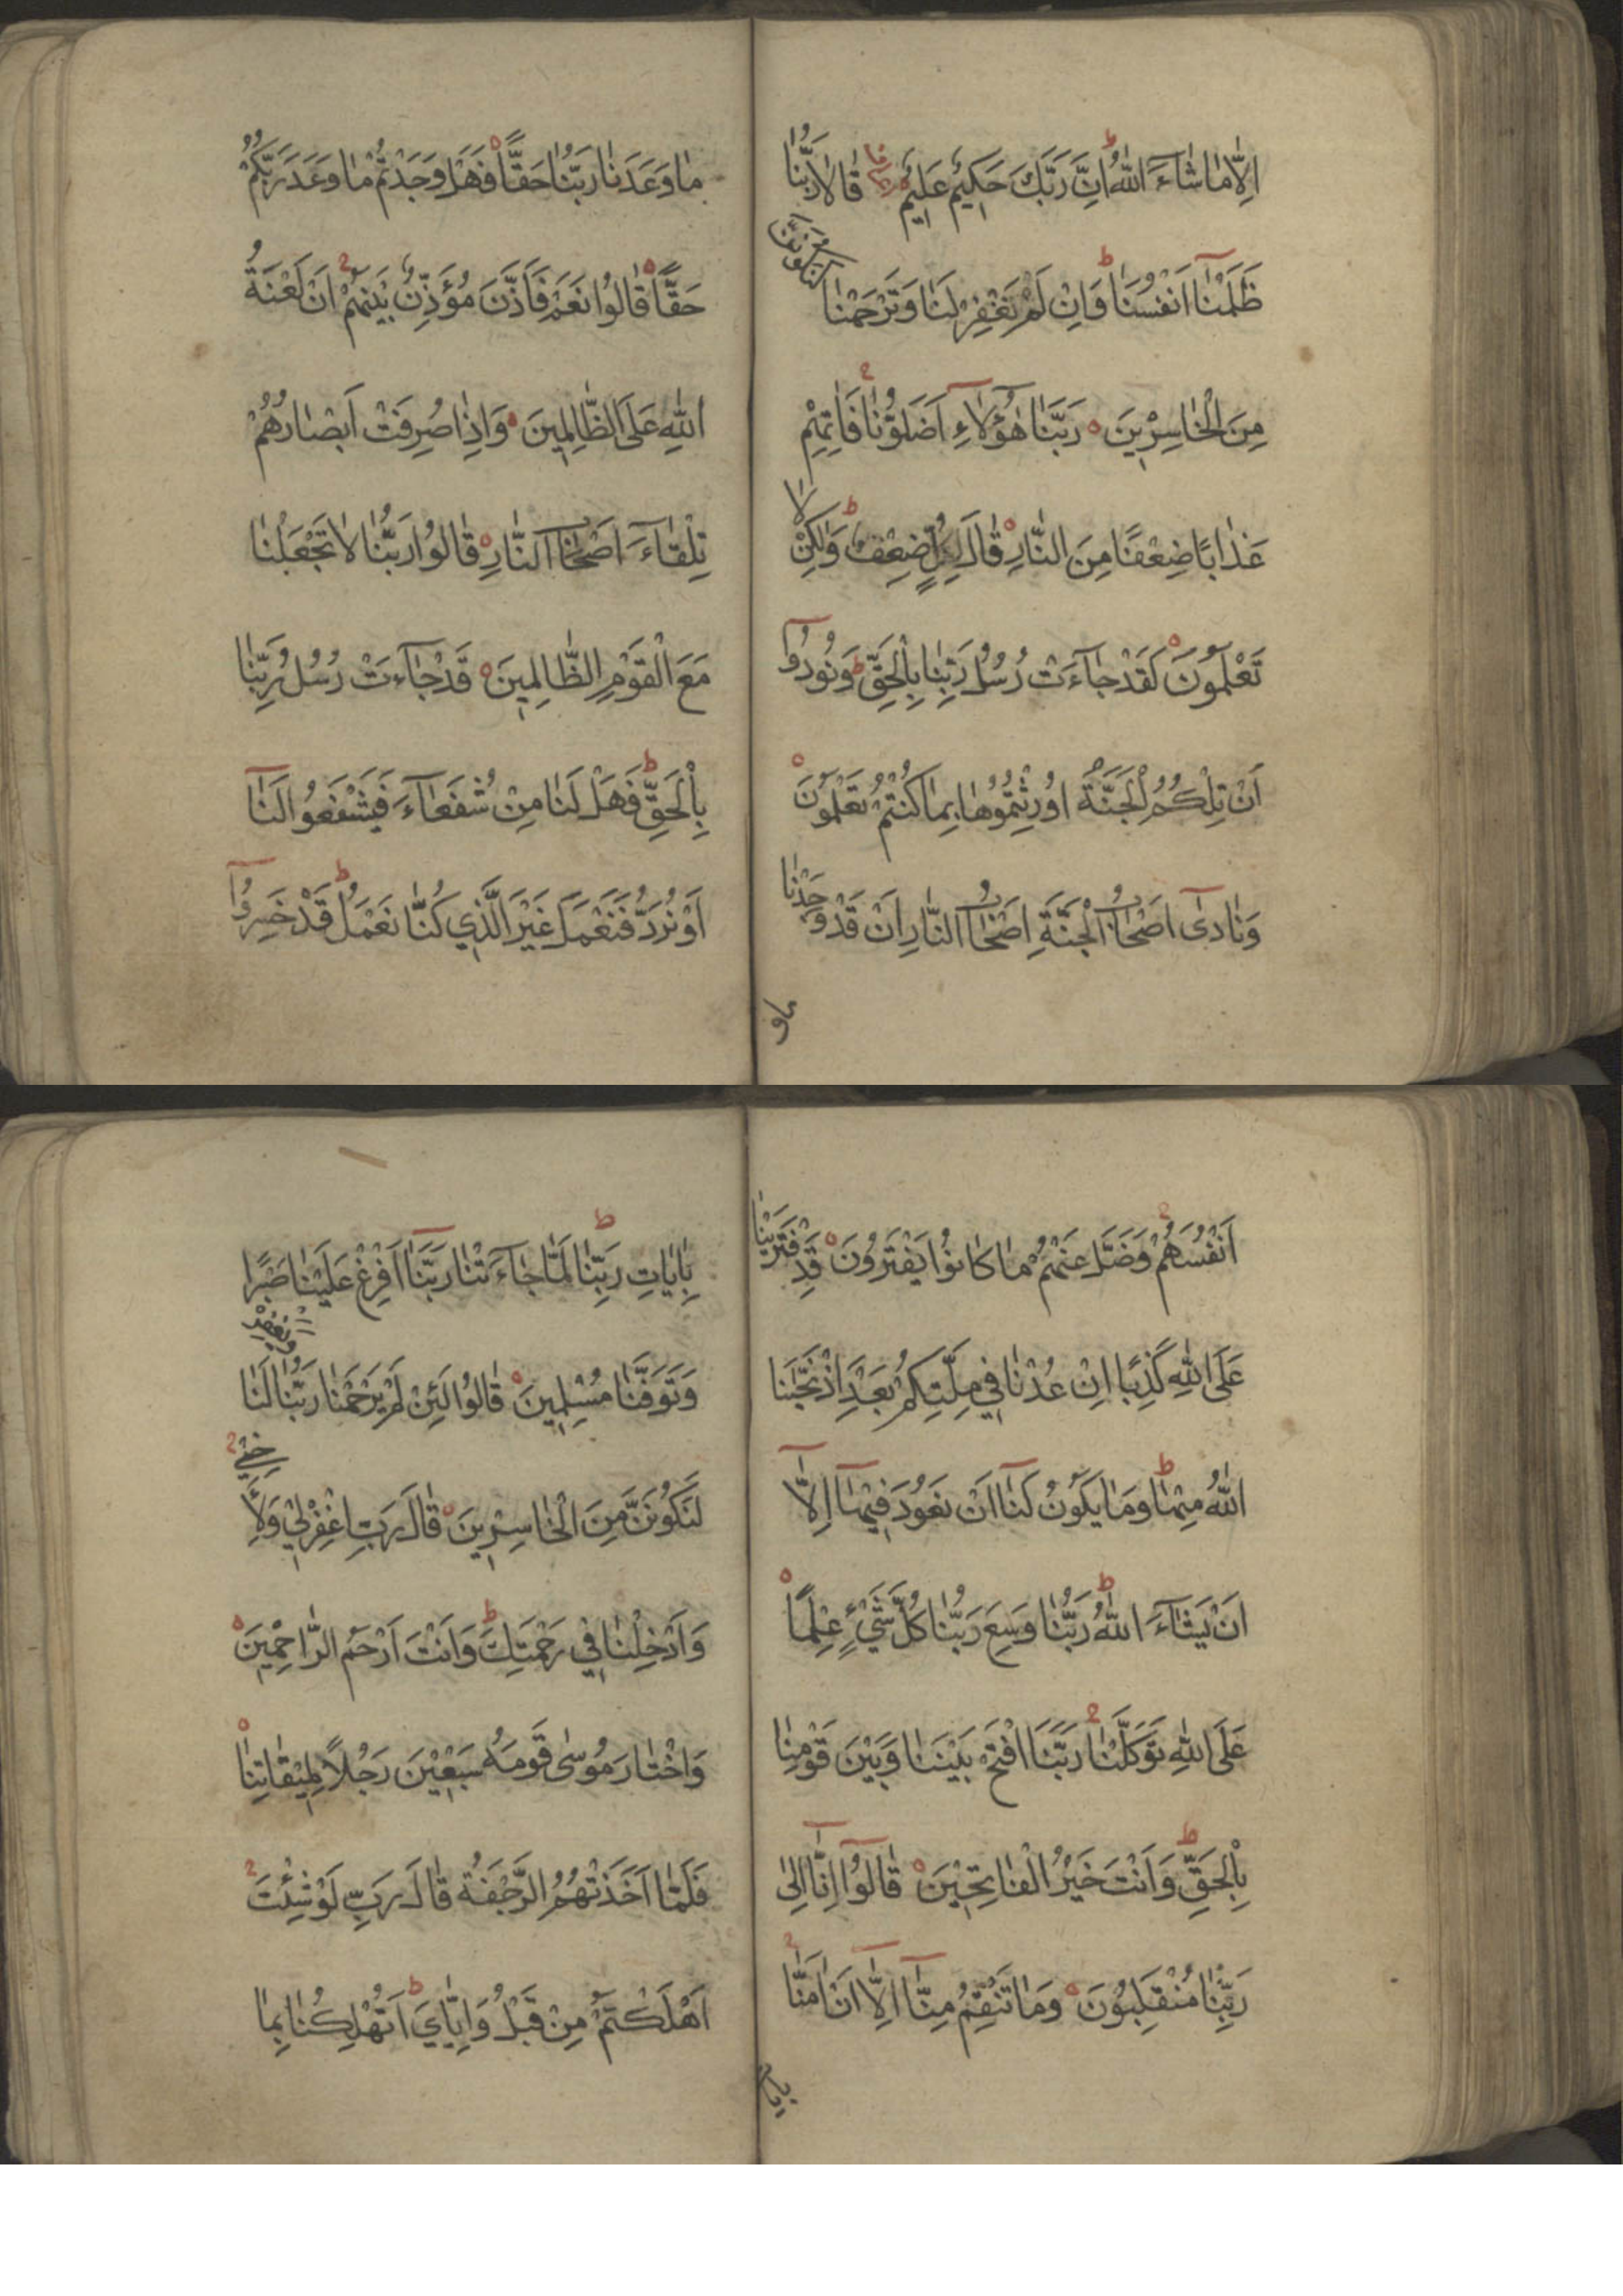 اِلَّا مَا شَاءَ اللّٰهُ اِنَّ رَبَّكَ حَكِيمٌ عَلِيمٌ قَالَا رَبَّنَا
ظَلَمْنَا اَنْفُسَنَا وَاِنْ لَمْ تَغْفِرْ لَنَا وَتَرْحَمْنَا لَنَكُونَنَّ
مِنَ الْخَاسِرِينَ رَبَّنَا هٰؤُلَاءِ اَضَلُّونَا فَاٰتِهِمْ
عَذَابًا ضِعْفًا مِنَ النَّارِ قَالَ لِكُلٍّ ضِعْفٌ وَلٰكِنْ لَا
تَعْلَمُونَ لَقَدْ جَاءَتْ رُسُلُ رَبِّنَا بِالْحَقِّ وَنُودُوا
اَنْ تِلْكُمُ الْجَنَّةُ اُورِثْتُمُوهَا بِمَا كُنْتُمْ تَعْمَلُونَ
وَنَادٰى اَصْحَابُ الْجَنَّةِ اَصْحَابَ النَّارِ اَنْ قَدْ وَجَدْنَا
ما و
مَا وَعَدَنَا رَبُّنَا حَقًّا فَهَلْ وَجَدْتُمْ مَا وَعَدَ رَبُّكُمْ
حَقًّا قَالُوا نَعَمْ فَاَذَّنَ مُؤَذِّنٌ بَيْنَهُمْ اَنْ لَعْنَةُ
اللّٰهِ عَلَى الظَّالِمِينَ وَاِذَا صُرِفَتْ اَبْصَارُهُمْ
تِلْقَاءَ اَصْحَابِ النَّارِ قَالُوا رَبَّنَا لَا تَجْعَلْنَا
مَعَ الْقَوْمِ الظَّالِمِينَ قَدْ جَاءَتْ رُسُلُ رَبِّنَا
بِالْحَقِّ فَهَلْ لَنَا مِنْ شُفَعَاءَ فَيَشْفَعُوا لَنَا
اَوْ نُرَدُّ فَنَعْمَلَ غَيْرَ الَّذِي كُنَّا نَعْمَلُ قَدْ خَسِرُوا
اَنْفُسَهُمْ وَضَلَّ عَنْهُمْ مَا كَانُوا يَفْتَرُونَ قَدِ افْتَرَيْنَا
عَلَى اللّٰهِ كَذِبًا اِنْ عُدْنَا فِي مِلَّتِكُمْ بَعْدَ اِذْ نَجّٰينَا
اللّٰهُ مِنْهَا وَمَا يَكُونُ لَنَا اَنْ نَعُودَ فِيهَا اِلَّا
اَنْ يَشَاءَ اللّٰهُ رَبُّنَا وَسِعَ رَبُّنَا كُلَّ شَيْءٍ عِلْمًا
عَلَى اللّٰهِ تَوَكَّلْنَا رَبَّنَا افْتَحْ بَيْنَنَا وَبَيْنَ قَوْمِنَا
بِالْحَقِّ وَاَنْتَ خَيْرُ الْفَاتِحِينَ قَالُوا اِنَّا اِلٰى
رَبِّنَا مُنْقَلِبُونَ وَمَا تَنْقِمُ مِنَّا اِلَّا اَنْ اٰمَنَّا
بِاٰيَاتِ رَبِّنَا لَمَّا جَاءَتْنَا رَبَّنَا اَفْرِغْ عَلَيْنَا صَبْرًا
وَتَوَفَّنَا مُسْلِمِينَ قَالُوا لَئِنْ لَمْ يَرْحَمْنَا رَبُّنَا وَيَغْفِرْ لَنَا
لَنَكُونَنَّ مِنَ الْخَاسِرِينَ قَالَ رَبِّ اغْفِرْ لِي وَلِاَخِي
وَاَدْخِلْنَا فِي رَحْمَتِكَ وَاَنْتَ اَرْحَمُ الرَّاحِمِينَ
وَاخْتَارَ مُوسٰى قَوْمَهُ سَبْعِينَ رَجُلًا لِمِيقَاتِنَا
فَلَمَّا اَخَذَتْهُمُ الرَّجْفَةُ قَالَ رَبِّ لَوْ شِئْتَ
اَهْلَكْتَهُمْ مِنْ قَبْلُ وَاِيَّايَ اَتُهْلِكُنَا بِمَا